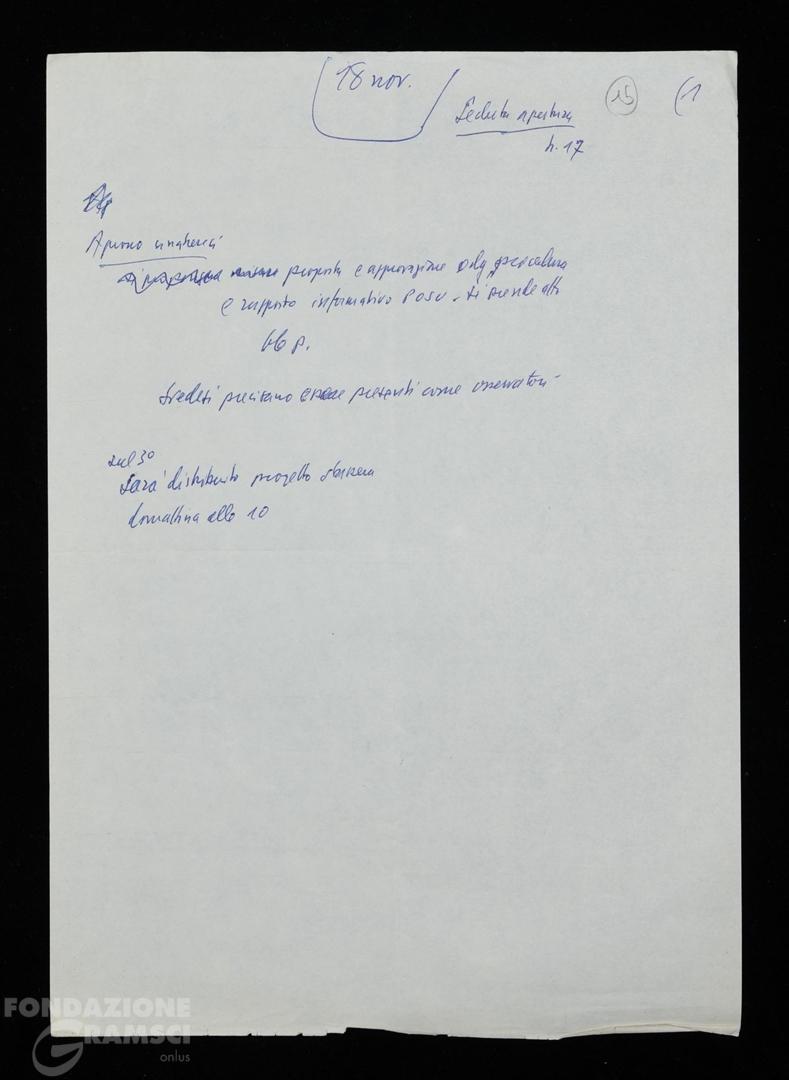 18 nov.
15
(1
Seduta apertura
h. 17
Aprono ungheresi
proposta e approvazione odg, procedura
e rapporto informativo POSU - si prende atto
66 p.
svedesi precisano presenti come osservatori
sul 3°
Sarà distribuito progetto stasera
domattina alle 10
FONDAZIONE
GRAMSCI
onlus